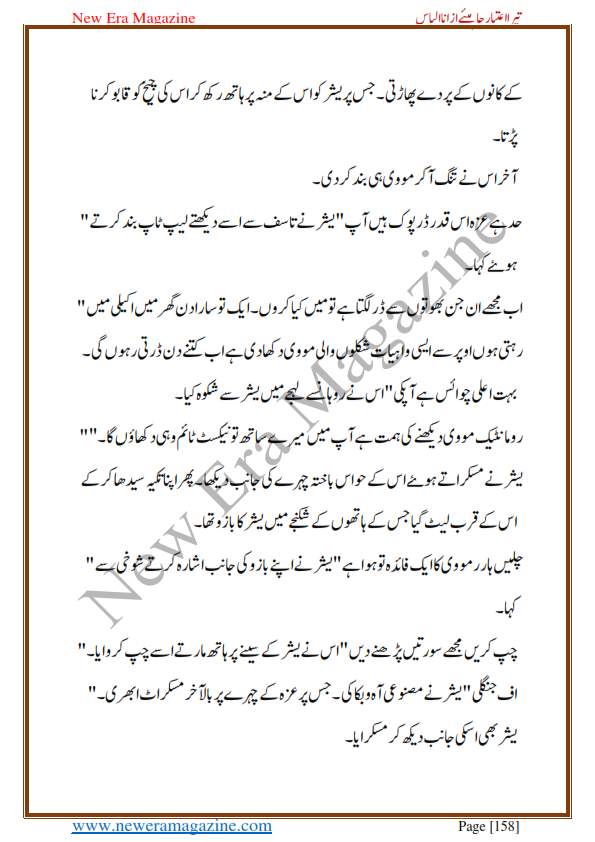 New Era Magazine تیرا اعتبار چاہئیے از انا الیاس
کے کانوں کے پردے پھاڑتی۔ جس پر یشر کو اس کے منہ پر ہاتھ رکھ کر اس کی چیخ کو قابو کرنا
پڑتا۔
آخر اس نے تنگ آکر مووی ہی بند کردی۔
حد ہے عزہ اس قدر ڈرپوک ہیں آپ "یشر نے تاسف سے اسے دیکھتے لیپ ٹاپ بند کرتے "
ہوئے کہا۔
اب مجھے ان جن بھوتوں سے ڈر لگتا ہے تو میں کیا کروں۔ ایک تو سارا دن گھر میں اکیلی میں "
رہتی ہوں اوپر سے ایسی واہیات شکلوں والی مووی دکھا دی ہے اب کتنے دن ڈرتی رہوں گی۔
بہت اعلی چوائس ہے آپکی "اس نے روہانسے لہجے میں یشر سے شکوہ کیا۔
رومانٹیک مووی دیکھنے کی ہمت ہے آپ میں میرے ساتھ تو نیکسٹ ٹائم وہی دکھاؤں گا۔" "
یشر نے مسکراتے ہوئے اس کے حواس باختہ چہرے کی جانب دیکھا۔ پھر اپنا تکیہ سیدھا کر کے
اس کے قرب لیٹ گیا جس کے ہاتھوں کے شکنجے میں یشر کا بازو تھا۔
چلیں ہارر مووی کا ایک فائدہ تو ہوا ہے "یشر نے اپنے بازو کی جانب اشارہ کرتے شوخی سے "
کہا۔
چپ کریں مجھے سورتیں پڑھنے دیں "اس نے یشر کے سینے پر ہاتھ مارتے اسے چپ کروایا۔"
اف جنگلی "یشر نے مصنوعی آہ و بکا کی۔ جس پر عزہ کے چہرے پر بالآخر مسکراٹ ابھری۔"
یشر بھی اسکی جانب دیکھ کر مسکرایا۔
New Era Magazine
www.neweramagazine.com Page [158]